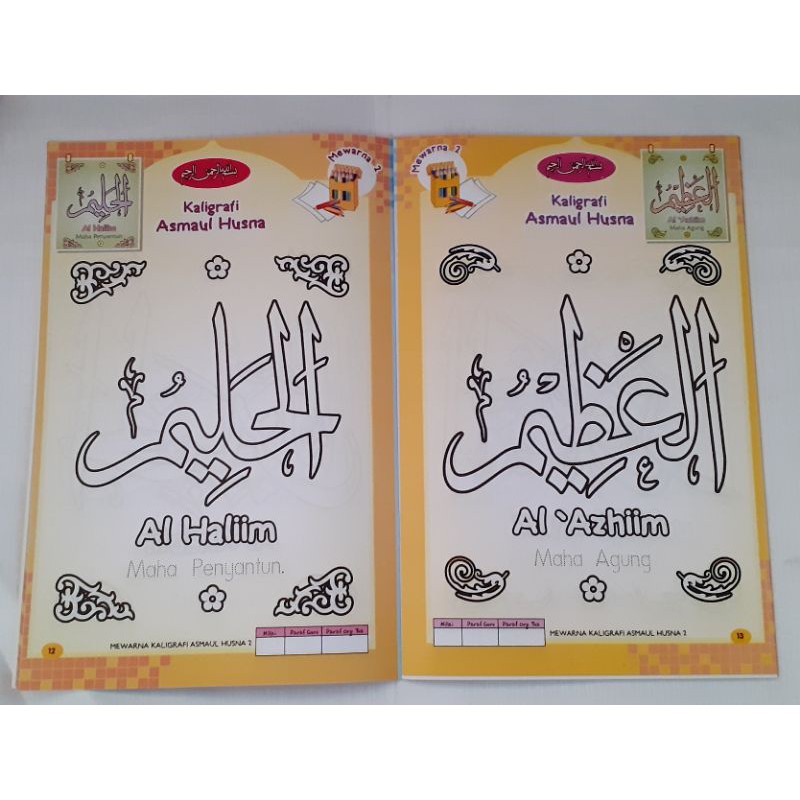 الحليم
Al Haliim
Maha Penyantun
بسم الله الرحمن الرحيم
Kaligrafi
Asmaul Husna
Mewarna 2
الحليم
Al Haliim
Maha Penyantun.
12
MEWARNA KALIGRAFI ASMAUL HUSNA 2
Nilai
Paraf Guru
Paraf Org. Tua
Mewarna 2
بسم الله الرحمن الرحيم
Kaligrafi
Asmaul Husna
العظيم
Al 'Azhiim
Maha Agung
العظيم
Al `Azhiim
Maha Agung
Nilai
Paraf Guru
Paraf Org. Tua
MEWARNA KALIGRAFI ASMAUL HUSNA 2
13